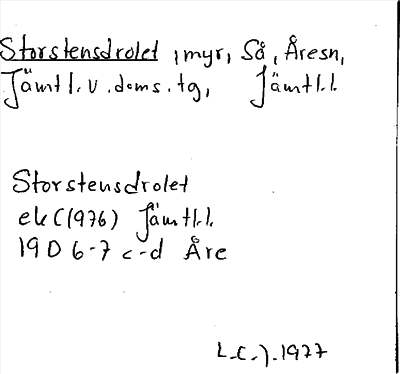 Storstensdrolet, myr, Så, Åresn,
Jämtl.v.doms.tg, Jämtl.l.
Storstensdrolet
ek C(1976) Jämtl.l.
19D 6-7 c-d Åre
L.C.J.1977